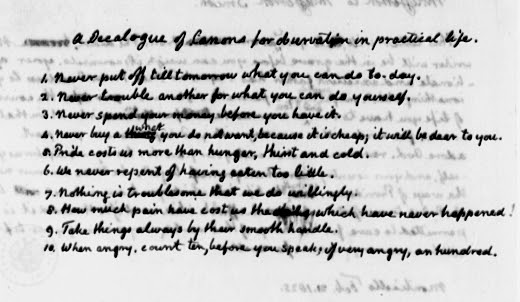 a Decalogue of Canons for observation in practical life.
1. Never put off till tomorrow what you can do to-day.
2. Never trouble another for what you can do yourself.
3. Never spend your money before you have it.
4. Never buy a what you do not want, because it is cheap; it will be dear to you.
5. Pride costs us more than hunger, thirst and cold.
6. We never repent of having eaten too little.
7. Nothing is troublesome that we do willingly.
8. How much pain have cost us the evils which have never happened!
9. Take things always by their smooth handle.
10. When angry, count ten, before you speak; if very angry, an hundred.
Monticello Feb. 21. 1825.